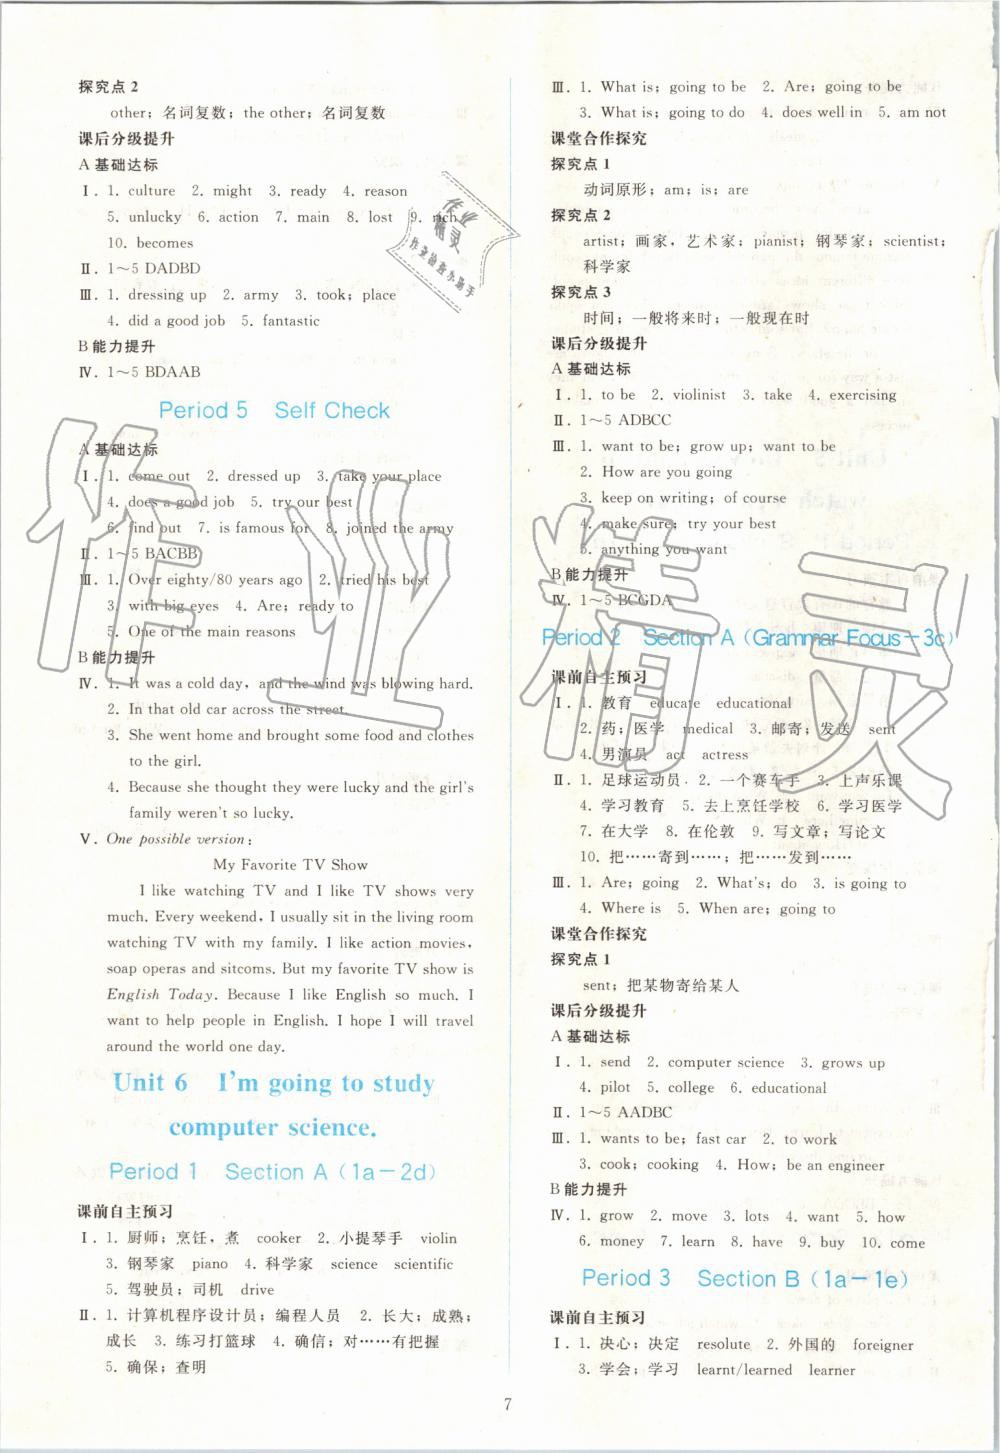 探究点 2
other；名词复数；the other；名词复数
课后分级提升
A 基础达标
Ⅰ. 1. culture 2. might 3. ready 4. reason
5. unlucky 6. action 7. main 8. lost 9. rich
10. becomes
Ⅱ. 1～5 DADBD
Ⅲ. 1. dressing up 2. army 3. took；place
4. did a good job 5. fantastic
B 能力提升
Ⅳ. 1～5 BDAAB
Period 5 Self Check
A 基础达标
Ⅰ. 1. come out 2. dressed up 3. take your place
4. does a good job 5. try our best
6. find out 7. is famous for 8. joined the army
Ⅱ. 1～5 BACBB
Ⅲ. 1. Over eighty/80 years ago 2. tried his best
3. with big eyes 4. Are；ready to
5. One of the main reasons
B 能力提升
Ⅳ. 1. It was a cold day, and the wind was blowing hard.
2. In that old car across the street.
3. She went home and brought some food and clothes
to the girl.
4. Because she thought they were lucky and the girl's
family weren't so lucky.
Ⅴ. One possible version：
My Favorite TV Show
I like watching TV and I like TV shows very
much. Every weekend, I usually sit in the living room
watching TV with my family. I like action movies,
soap operas and sitcoms. But my favorite TV show is
English Today. Because I like English so much. I
want to help people in English. I hope I will travel
around the world one day.
Unit 6 I'm going to study
computer science.
Period 1 Section A (1a－2d)
课前自主预习
Ⅰ. 1. 厨师；烹饪，煮 cooker 2. 小提琴手 violin
3. 钢琴家 piano 4. 科学家 science scientific
5. 驾驶员；司机 drive
Ⅱ. 1. 计算机程序设计员；编程人员 2. 长大；成熟；
成长 3. 练习打篮球 4. 确信；对……有把握
5. 确保；查明
Ⅲ. 1. What is；going to be 2. Are；going to be
3. What is；going to do 4. does well in 5. am not
课堂合作探究
探究点 1
动词原形；am；is；are
探究点 2
artist；画家，艺术家；pianist；钢琴家；scientist；
科学家
探究点 3
时间；一般将来时；一般现在时
课后分级提升
A 基础达标
Ⅰ. 1. to be 2. violinist 3. take 4. exercising
Ⅱ. 1～5 ADBCC
Ⅲ. 1. want to be；grow up；want to be
2. How are you going
3. keep on writing；of course
4. make sure；try your best
5. anything you want
B 能力提升
Ⅳ. 1～5 BCGDA
Period 2 Section A (Grammar Focus－3c)
课前自主预习
Ⅰ. 1. 教育 educate educational
2. 药；医学 medical 3. 邮寄；发送 sent
4. 男演员 act actress
Ⅱ. 1. 足球运动员 2. 一个赛车手 3. 上声乐课
4. 学习教育 5. 去上烹饪学校 6. 学习医学
7. 在大学 8. 在伦敦 9. 写文章；写论文
10. 把……寄到……；把……发到……
Ⅲ. 1. Are；going 2. What's；do 3. is going to
4. Where is 5. When are；going to
课堂合作探究
探究点 1
sent；把某物寄给某人
课后分级提升
A 基础达标
Ⅰ. 1. send 2. computer science 3. grows up
4. pilot 5. college 6. educational
Ⅱ. 1～5 AADBC
Ⅲ. 1. wants to be；fast car 2. to work
3. cook；cooking 4. How；be an engineer
B 能力提升
Ⅳ. 1. grow 2. move 3. lots 4. want 5. how
6. money 7. learn 8. have 9. buy 10. come
Period 3 Section B (1a－1e)
课前自主预习
Ⅰ. 1. 决心；决定 resolute 2. 外国的 foreigner
3. 学会；学习 learnt/learned learner
7
作业
精灵
作业检查小助手
作业精灵